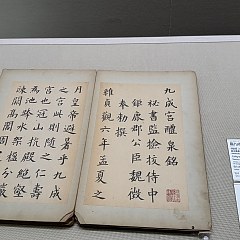 九成宮醴泉銘
秘書監檢校侍中
鉅鹿郡公臣魏徵
奉勑撰
維貞觀六年孟夏之
月皇帝避暑乎九成
之宮此則隨之仁壽
宮也冠山抗殿絕壑
為池跨水架楹分巖
竦闕高閣周